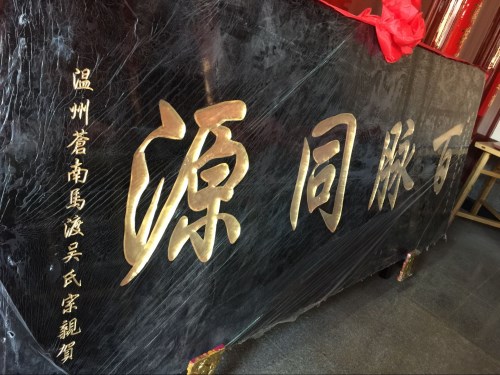 百脉同源
温州蒼南馬渡吴氏宗親賀